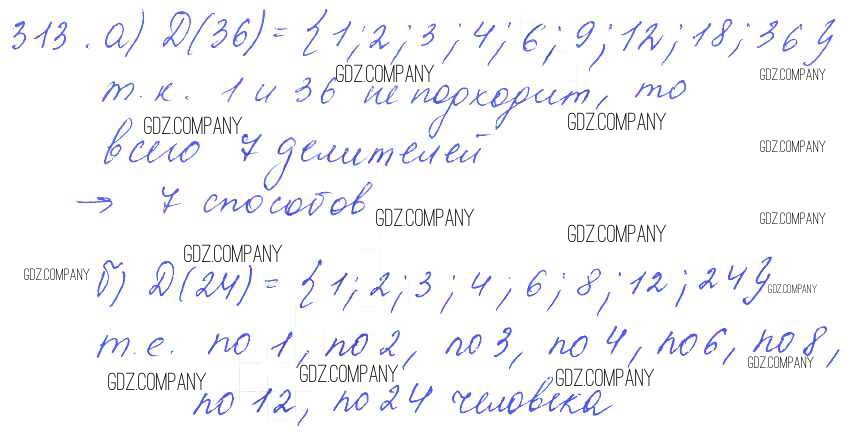 313. а) D(36) = {1; 2; 3; 4; 6; 9; 12; 18; 36}
GDZ.COMPANY GDZ.COMPANY
т.к. 1 и 36 не подходит, то
GDZ.COMPANY GDZ.COMPANY
всего 7 делителей GDZ.COMPANY
→ 7 способов GDZ.COMPANY GDZ.COMPANY
GDZ.COMPANY
GDZ.COMPANY
GDZ.COMPANY б) D(24) = {1; 2; 3; 4; 6; 8; 12; 24} GDZ.COMPANY
т.е. по 1, по 2, по 3, по 4, по 6, по 8,
GDZ.COMPANY GDZ.COMPANY GDZ.COMPANY GDZ.COMPANY
по 12, по 24 человека